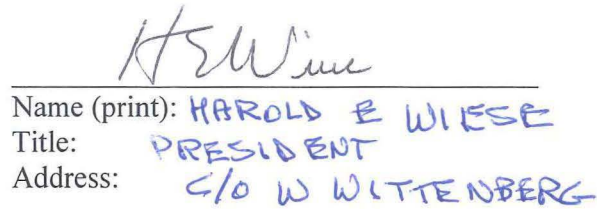 Name (print): HAROLD E WIESE
Title: PRESIDENT
Address: C/O W WITTENBERG